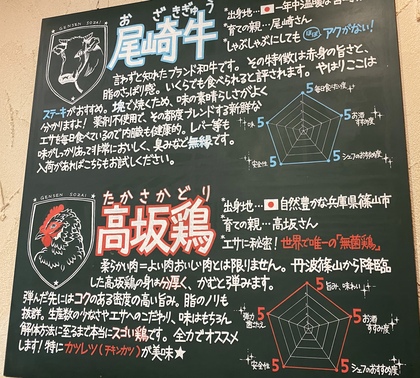 GENSEN SOZAI
おざきぎゅう
尾崎牛
"出身地…🇯🇵一年中温暖な宮
育ての親…尾崎さん
"しゃぶしゃぶにしても ほぼ アクがない!
言わずと知れたブランド和牛です。その特徴は赤身の旨さと、
脂のさっぱり感。いくらでも食べられると評されます。やはりここは
ステーキがおすすめ。塊で焼くため、味の素晴らしさがよく
分かりますよ! 薬剤不使用で、その都度ブレンドする新鮮な
エサを毎日食べているので内臓も健康的。レバー等も
味がしっかりあって非常においしく、臭みなど無縁です。
入荷があればこちらもお試しください。
5 毎日食べたい度
5 お酒すすむ度
5 シェフのおすすめ度
安全性 5
5
GENSEN SOZAI
たかさかどり
高坂鶏
"出身地…🇯🇵自然豊かな兵庫県篠山市
育ての親…高坂さん
エサに秘密! 世界で唯一の「無菌鶏」
柔らかい肉=よい肉おいしい肉とは限りません。丹波篠山から降臨
した高坂鶏の身は分厚く、かぜと弾みます。
弾んだ先にはコクのある密度の高い旨み。脂のノリも
抜群。生産数の少なさやエサへのこだわり、味はもちろん
解体方法に至るまで本当にスゴい鶏です。全力でオススメ
します! 特にカツレツ(チキンカツ)が美味★
5 旨み、味わい
5 お酒すすむ度
5 シェフのおすすめ度
安全性 5
弾力 歯ごたえ 5